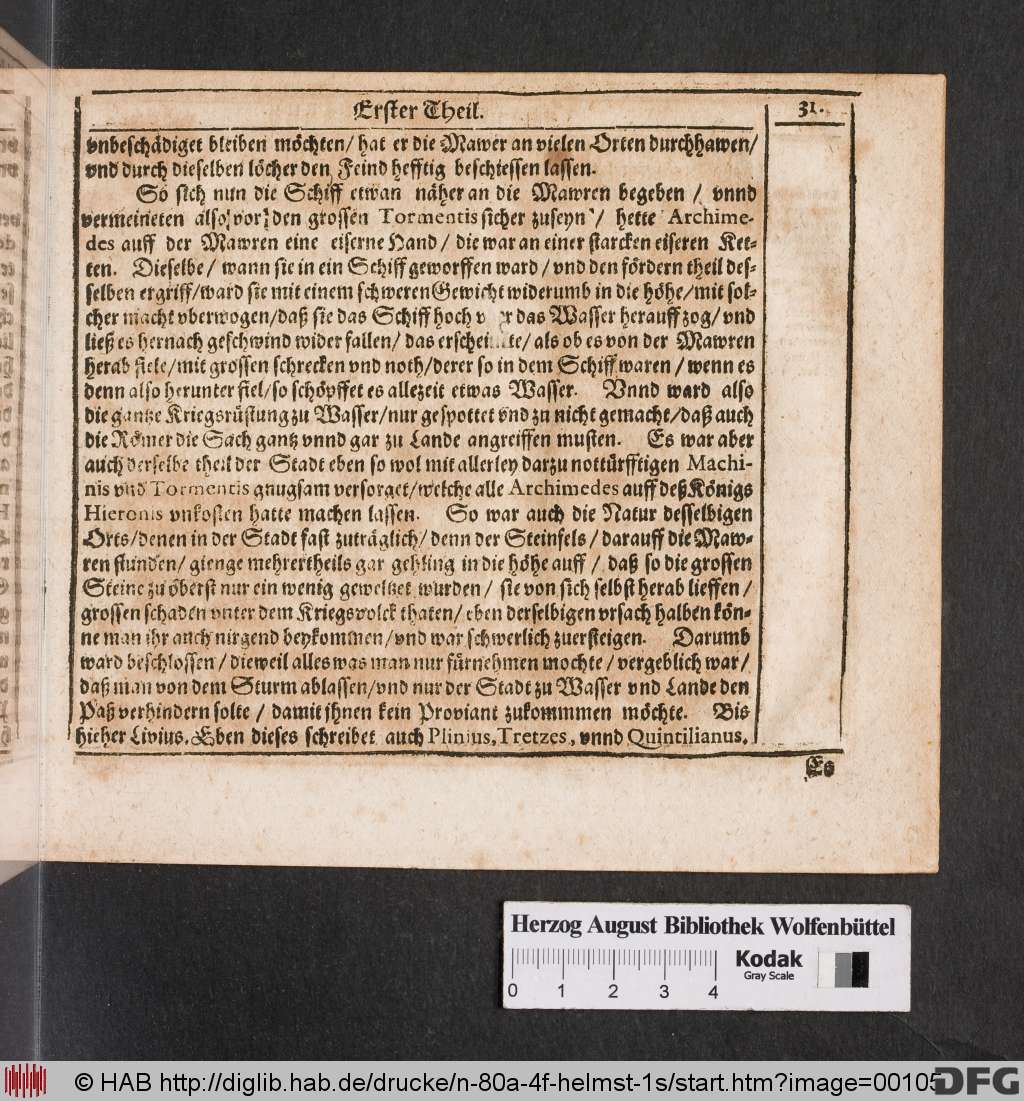 Erster Theil.
31.
vnbeschädiget bleiben möchten/ hat er die Mawer an vielen Orten durchhawen/
vnd durch dieselben löcher den Feind hefftig beschiessen lassen.
So sich nun die Schiff etwan näher an die Mawren begeben / vnnd
vermeineten also vor den grossen Tormentis sicher zuseyn / hette Archime-
des auff der Mawren eine eiserne Hand / die war an einer starcken eiseren Ket-
ten. Dieselbe / wann sie in ein Schiff geworffen ward / vnd den fördern theil des-
selben ergriff/ward sie mit einem schweren Gewicht widerumb in die höhe/mit sol-
cher macht vberwogen/daß sie das Schiff hoch das Wasser herauff zog/ vnd
ließ es hernach geschwind wider fallen/ das / als ob es von der Mawren
herab fiele/mit grossen schrecken vnd noth/derer so in dem Schiff waren / wenn es
denn also herunter fiel/so schöpffet es allezeit etwas Wasser. Vnnd ward also
die gantze Kriegsrüstung zu Wasser/nur gespottet vnd zu nicht gemacht/daß auch
die Römer die Sach gantz vnnd gar zu Lande angreiffen musten. Es war aber
auch derselbe theil der Stadt eben so wol mit allerley darzu nottürfftigen Machi-
nis vnd Tormentis gnugsam versorget/welche alle Archimedes auff deß Königs
Hieronis vnkosten hatte machen lassen. So war auch die Natur desselbigen
Orts/denen in der Stadt fast zuträglich/ denn der Steinfels / darauff die Maw-
ren stunden/ gienge mehrertheils gar gehling in die höhe auff / daß so die grossen
Steine zu öberst nur ein wenig geweltzet wurden / sie von sich selbst herab lieffen /
grossen schaden vnter dem Kriegsvolck thaten/ eben derselbigen vrsach halben kön-
ne man ihr auch nirgend beykommen/vnd war schwerlich zuersteigen. Darumb
ward beschlossen / dieweil alles was man nur fürnehmen mochte / vergeblich war/
daß man von dem Sturm ablassen/vnd nur der Stadt zu Wasser vnd Lande den
Paß verhindern solte / damit jhnen kein Proviant zukommmen möchte. Bis
hieher Livius. Eben dieses schreibet auch Plinius, Tretzes, vnnd Quintilianus.
Es
Herzog August Bibliothek Wolfenbüttel
Kodak
Gray Scale
0 1 2 3 4
© HAB http://diglib.hab.de/drucke/n-80a-4f-helmst-1s/start.htm?image=00105
DFG